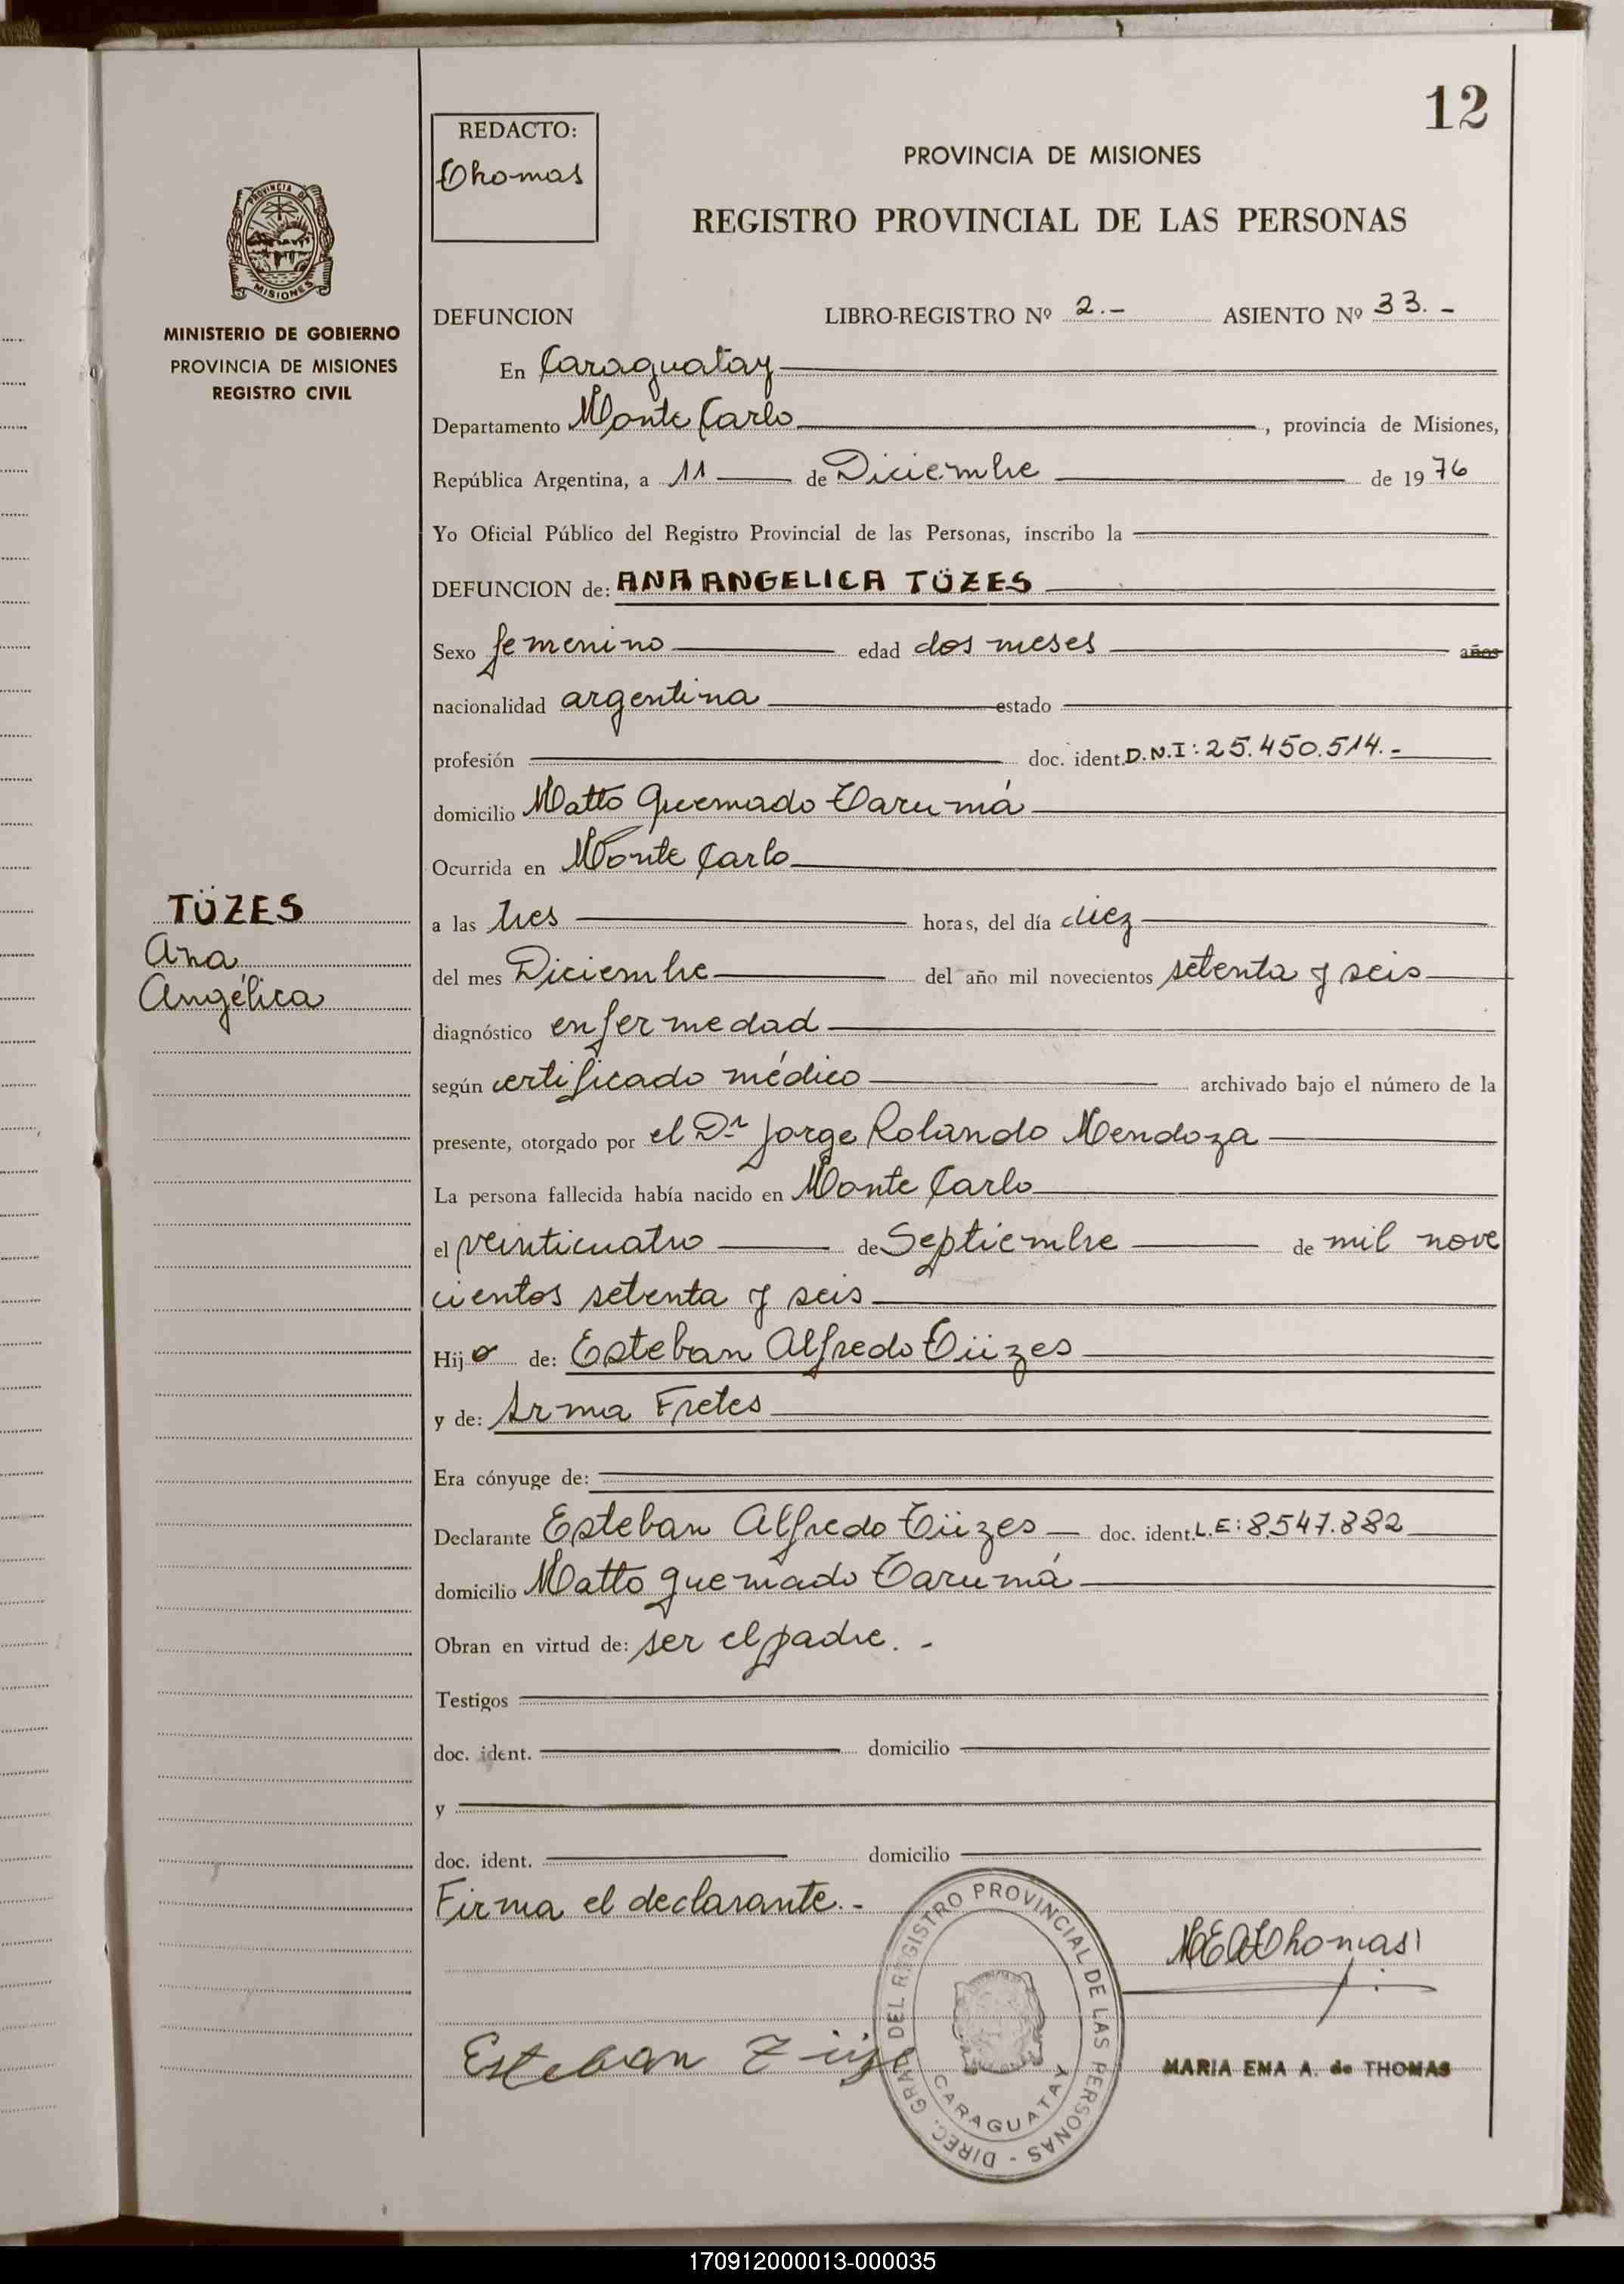 12
REDACTO:
Thomas
PROVINCIA DE MISIONES
REGISTRO PROVINCIAL DE LAS PERSONAS
PROVINCIA DE
MISIONES
MINISTERIO DE GOBIERNO
PROVINCIA DE MISIONES
REGISTRO CIVIL
DEFUNCION LIBRO-REGISTRO Nº 2.- ASIENTO Nº 33.-
En Caraguatay
Departamento Monte Carlo, provincia de Misiones,
República Argentina, a 11 de Diciembre de 1976
Yo Oficial Público del Registro Provincial de las Personas, inscribo la
DEFUNCION de: ANA ANGELICA TÜZES
Sexo femenino edad dos meses años
nacionalidad argentina estado
profesión doc. ident. D.N.I: 25.450.514.-
domicilio Matto Quemado Tarumá
Ocurrida en Monte Carlo
TÜZES
Ana
Angélica
a las tres horas, del día diez
del mes Diciembre del año mil novecientos setenta y seis
diagnóstico enfermedad
según certificado médico archivado bajo el número de la
presente, otorgado por el Dr Jorge Rolando Mendoza
La persona fallecida había nacido en Monte Carlo
el veinticuatro de Septiembre de mil nove
cientos setenta y seis
Hij de: Esteban Alfredo Tüzes
y de: Irma Fretes
Era cónyuge de:
Declarante Esteban Alfredo Tüzes doc. ident. L.E: 8.547.882
domicilio Matto quemado Tarumá
Obran en virtud de: ser el padre.-
Testigos
doc. ident. domicilio
y
doc. ident. domicilio
Firma el declarante.-
M E A Thomas
Esteban
DIREC. GRAL. DEL REGISTRO PROVINCIAL DE LAS PERSONAS -
CARAGUATAY
MARIA EMA A. de THOMAS
170912000013-000035